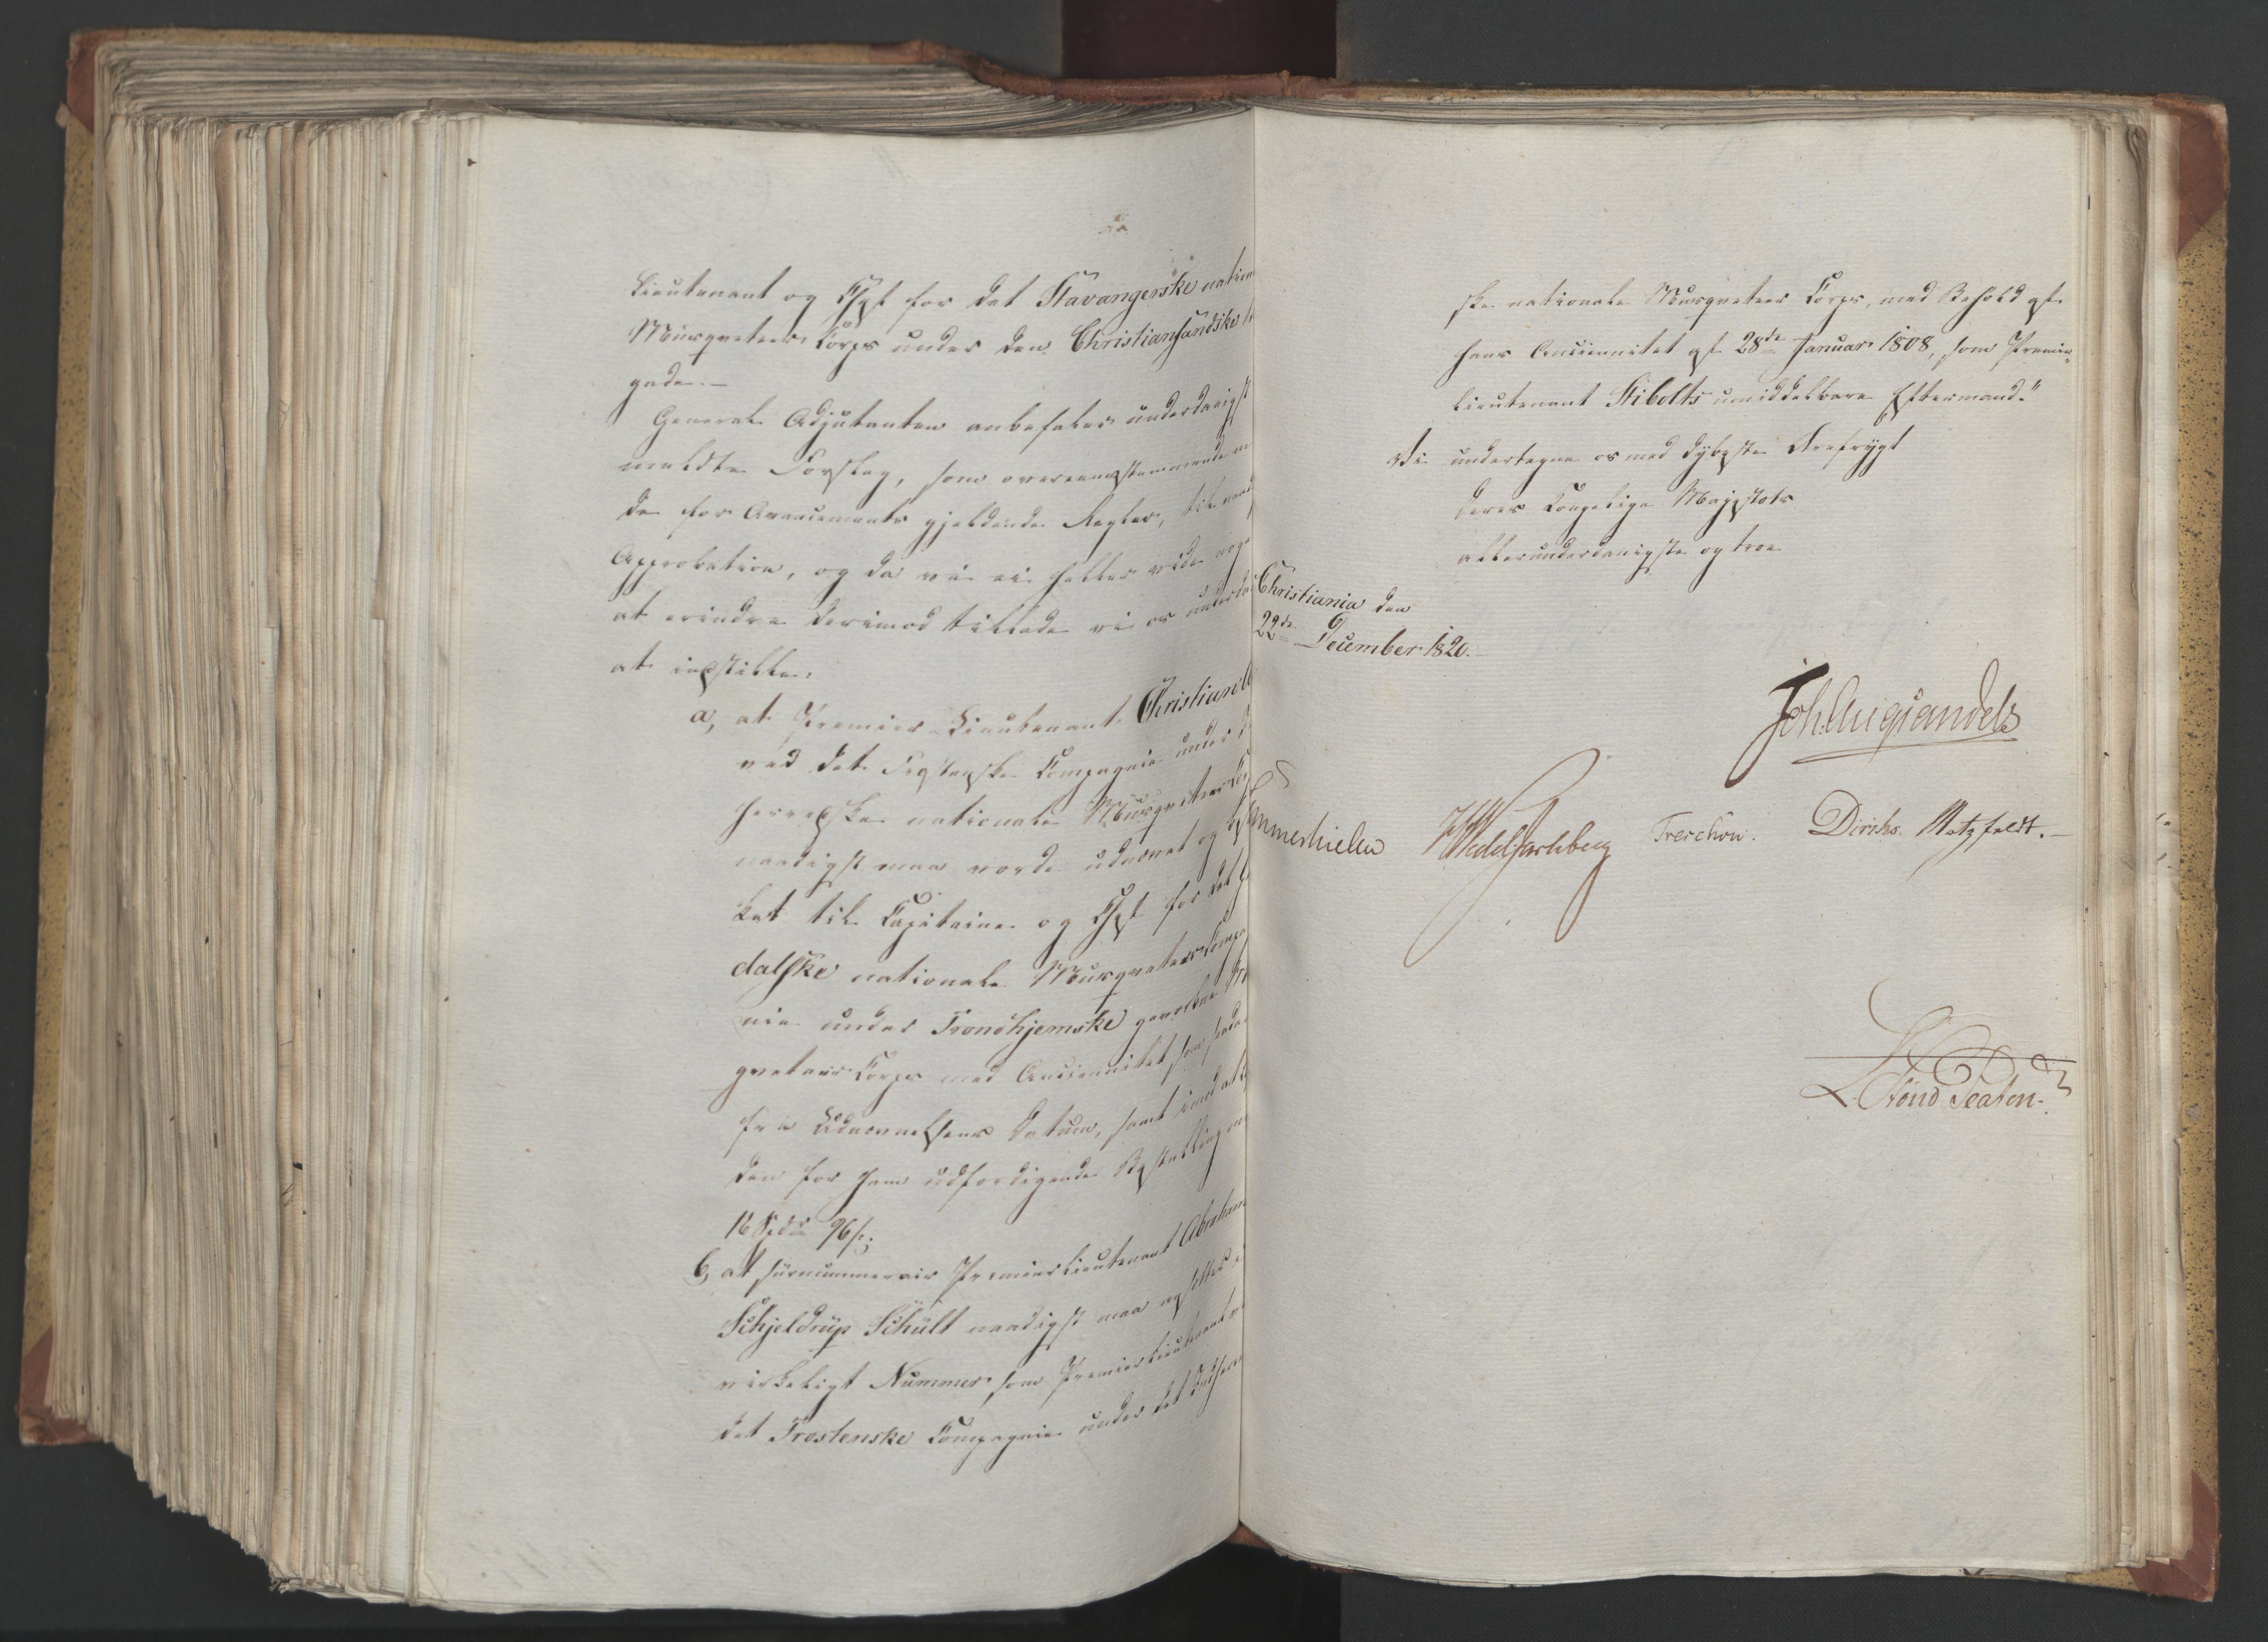 Lieutenant og Chef for det Stavangerske nation
Musqueteer Corps under den Christiansandske
gade.—
General Adjutanten anbefaler underdanigst
meldte Forslag, som overeensstemmende m
de for Avancements gjeldende Regler, til naad
Approbation, og da vi ei heller vide noge
at erindre derimod tillade vi os underda
at indstille:
a, at Premier Lieutenant Christian
ved det Frostenske Compagnie under d
herredske nationale Musqueteer Co
naadigst maa vorde udnævnt og
ket til Capitaine og Chef for det
dalske nationale Musqueteer Compa
nie under Trondhjemske gevorbne Mu
queteer Corps med Anciennitet som saadan
fra Udnævnelsens Datum, samt imod at
den for ham udfærdigende Bestalling
16 Spdr 96 s;
b, at surnummerair Premier Lieutenant Abraham
Schjeldrup Schült naadigst maa ansættes i
virkeligt Nummer som Premier Lieutenant
det Frostenske Compagnie under det Indherre
ske nationale Musqueteer Corps, med Behold af
hans Anciennitet af 28de Januar 1808, som Premier
Lieutenant Stibolts umiddelbare Eftermand."
Vi undertegne os med dybeste Ærefrygt
Deres Kongelige Majestæts
allerunderdanigste og troe
Christiania den
22de December 1820.
Joh. Aug. Sandels
mmerhielm HWedelJarlsberg Treschow. Diriks. Motzfeldt.